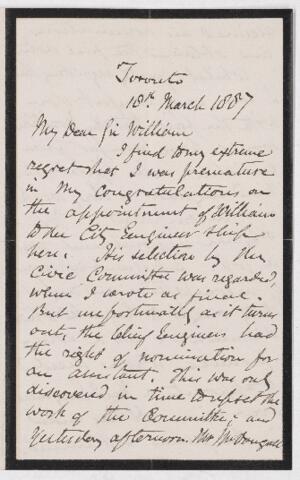 Toronto
18th March 1887
My Dear Sir William
I find to my extreme
regret that I was premature
in my congratulations on
the appointment of William
to the City Engineer ship
here. His selection by the
Civic Committee was regarded,
when I wrote as final.
But unfortunately as it turns
out, the Chief Engineer had
the right of nomination for
an assistant. This was only
discovered in time to upset the
work of the Committee; and
Yesterday afternoon. Mr McDougall